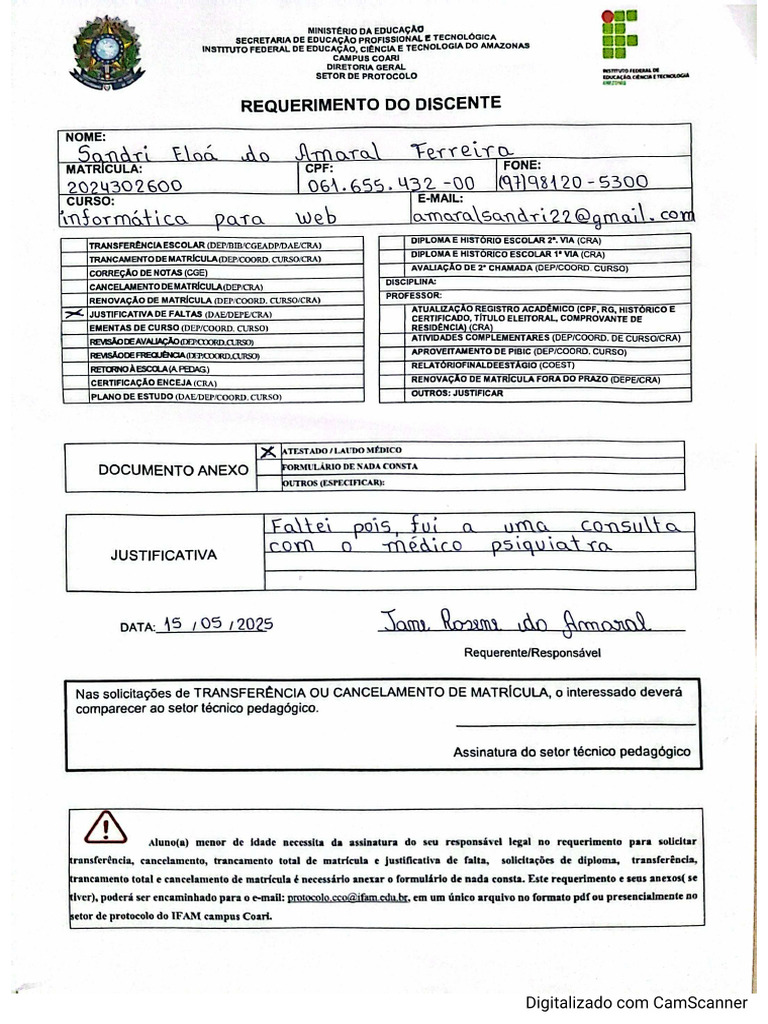 MINISTÉRIO DA EDUCAÇÃO
SECRETARIA DE EDUCAÇÃO PROFISSIONAL E TECNOLÓGICA
INSTITUTO FEDERAL DE EDUCAÇÃO, CIÊNCIA E TECNOLOGIA DO AMAZONAS
CAMPUS COARI
DIRETORIA GERAL
SETOR DE PROTOCOLO
INSTITUTO FEDERAL DE
EDUCAÇÃO, CIÊNCIA E TECNOLOGIA
AMAZONAS
REQUERIMENTO DO DISCENTE
NOME:
Sandri Eloá do Amaral Ferreira
MATRÍCULA: CPF: FONE:
2024302600 061.655.432-00 (97)98120-5300
CURSO: E-MAIL:
informática para web amaralsandri22@gmail.com
TRANSFERÊNCIA ESCOLAR (DEP/BIB/CGEADP/DAE/CRA)
TRANCAMENTO DE MATRÍCULA (DEP/COORD. CURSO/CRA)
CORREÇÃO DE NOTAS (CGE)
CANCELAMENTO DE MATRÍCULA (DEP/CRA)
RENOVAÇÃO DE MATRÍCULA (DEP/COORD. CURSO/CRA)
X JUSTIFICATIVA DE FALTAS (DAE/DEPE/CRA)
EMENTAS DE CURSO (DEP/COORD. CURSO)
REVISÃO DE AVALIAÇÃO (DEP/COORD. CURSO)
REVISÃO DE FREQUÊNCIA (DEP/COORD. CURSO)
RETORNO À ESCOLA (A. PEDAG.)
CERTIFICAÇÃO ENCEJA (CRA)
PLANO DE ESTUDO (DAE/DEP/COORD. CURSO)
DIPLOMA E HISTÓRIO ESCOLAR 2ª. VIA (CRA)
DIPLOMA E HISTÓRICO ESCOLAR 1ª VIA (CRA)
AVALIAÇÃO DE 2ª CHAMADA (DEP/COORD. CURSO)
DISCIPLINA:
PROFESSOR:
ATUALIZAÇÃO REGISTRO ACADÊMICO (CPF, RG, HISTÓRICO E
CERTIFICADO, TÍTULO ELEITORAL, COMPROVANTE DE
RESIDÊNCIA) (CRA)
ATIVIDADES COMPLEMENTARES (DEP/COORD. DE CURSO/CRA)
APROVEITAMENTO DE PIBIC (DEP/COORD. CURSO)
RELATÓRIO FINAL DE ESTÁGIO (COEST)
RENOVAÇÃO DE MATRÍCULA FORA DO PRAZO (DEPE/CRA)
OUTROS: JUSTIFICAR
DOCUMENTO ANEXO
X ATESTADO / LAUDO MÉDICO
FORMULÁRIO DE NADA CONSTA
OUTROS (ESPECIFICAR):
JUSTIFICATIVA
Faltei pois, fui a uma consulta
com o médico psiquiatra
DATA: 15 / 05 / 2025 Jane Rosene do Amaral
Requerente/Responsável
Nas solicitações de TRANSFERÊNCIA OU CANCELAMENTO DE MATRÍCULA, o interessado deverá
comparecer ao setor técnico pedagógico.
Assinatura do setor técnico pedagógico
Aluno(a) menor de idade necessita da assinatura do seu responsável legal no requerimento para solicitar
transferência, cancelamento, trancamento total de matrícula e justificativa de falta, solicitações de diploma, transferência,
trancamento total e cancelamento de matrícula é necessário anexar o formulário de nada consta. Este requerimento e seus anexos( se
tiver), poderá ser encaminhado para o e-mail: protocolo.cco@ifam.edu.br, em um único arquivo no formato pdf ou presencialmente no
setor de protocolo do IFAM campus Coari.
Digitalizado com CamScanner